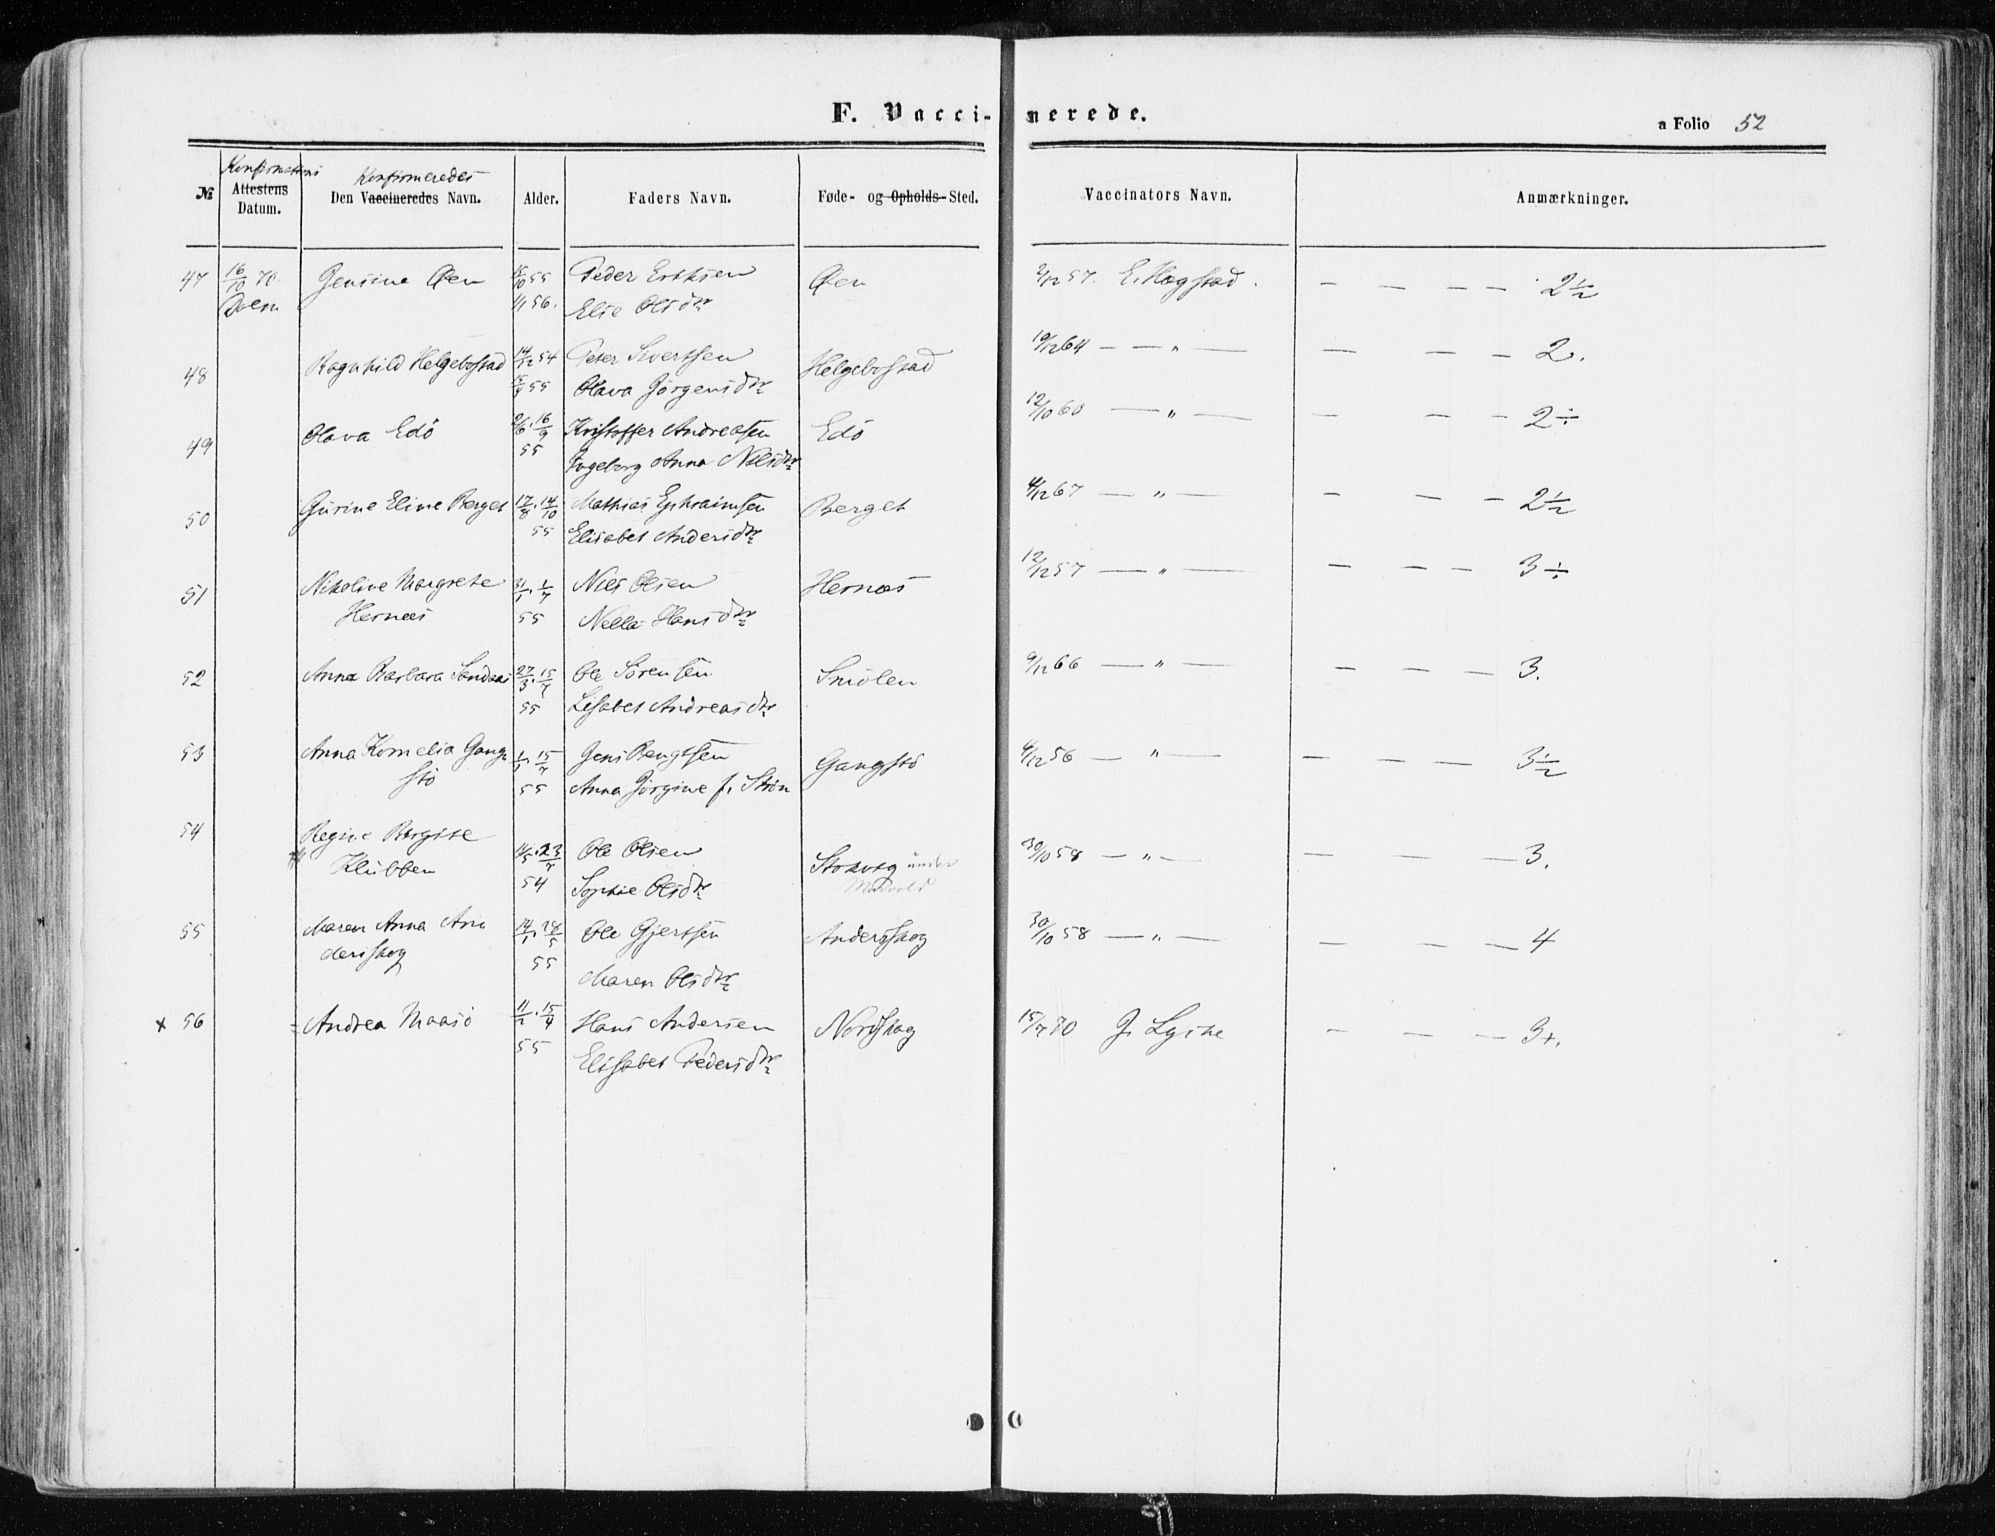 F. Vacci-nerede.
a Folio 52
Konfirmations Konfirmeredes
№ Attestens Datum. Den Vaccineredes Navn. Alder. Faders Navn. Føde- og Opholds-Sted. Vaccinators Navn. Anmærkninger.
47 16/10 70. Jensine Øen 15/10 55 Peder Eriksen Øen 2/12 57. E. Hagstad. — — — — 2 1/2
Dolm 1/1 56. Elie Olsdtr
48 Ragnhild Helgebostad 14/12 54 Peter Sivertsen Helgebostad 10/12 64 — — " — — — — 2.
55 Olava Jörgensdtr
49 Olava Edö 2/6. 16/9 Kristoffer Andreasen Edö 12/10 60 — " — — — — 2 ÷
55 Ingeborg Anna Nilsdtr
50 Gurine Eline Berget 17/8. 14/10 Mathias Ephraimsen Berget 4/12 67 — " — — — — 2 1/2
55 Elisabet Andersdtr
51 Nikoline Margrete 31/1. 1/7 Niels Olsen Hernæs 12/12 57 — " — — — — 3 ÷
Hernæs 55 Nella Hansdtr
52 Anna Barbara 27/3. 15/7 Ole Sörensen Smölen 9/12 66 — " — — — — 3.
55 Lisabet Andreasdtr
53 Anna Kornelia Gang 1/1. 15/7 Jens Bengtsen Gangstö 4/12 56 — " — — — — — 3 1/2
stö 55 Anna Jörgine f. Ström
54 Regine Bergite
Klubben 14/5. 23/7 Ole Olsen Storvag under 30/10 58 — " — — — — 3.
54 Sophie Olsdtr
55 Maren Anna An 14/1. 28/5 Ole Gjertsen Andersskog 30/10 58 — " — — — — 4
dersskog 55 Maren Olsdtr
x 56 = Andrea Maasö 11/2. 15/4 Hans Andersen Nordskog 15/7 70 J. Lyche — — — 3+.
55 Elisabet Pedersdtr